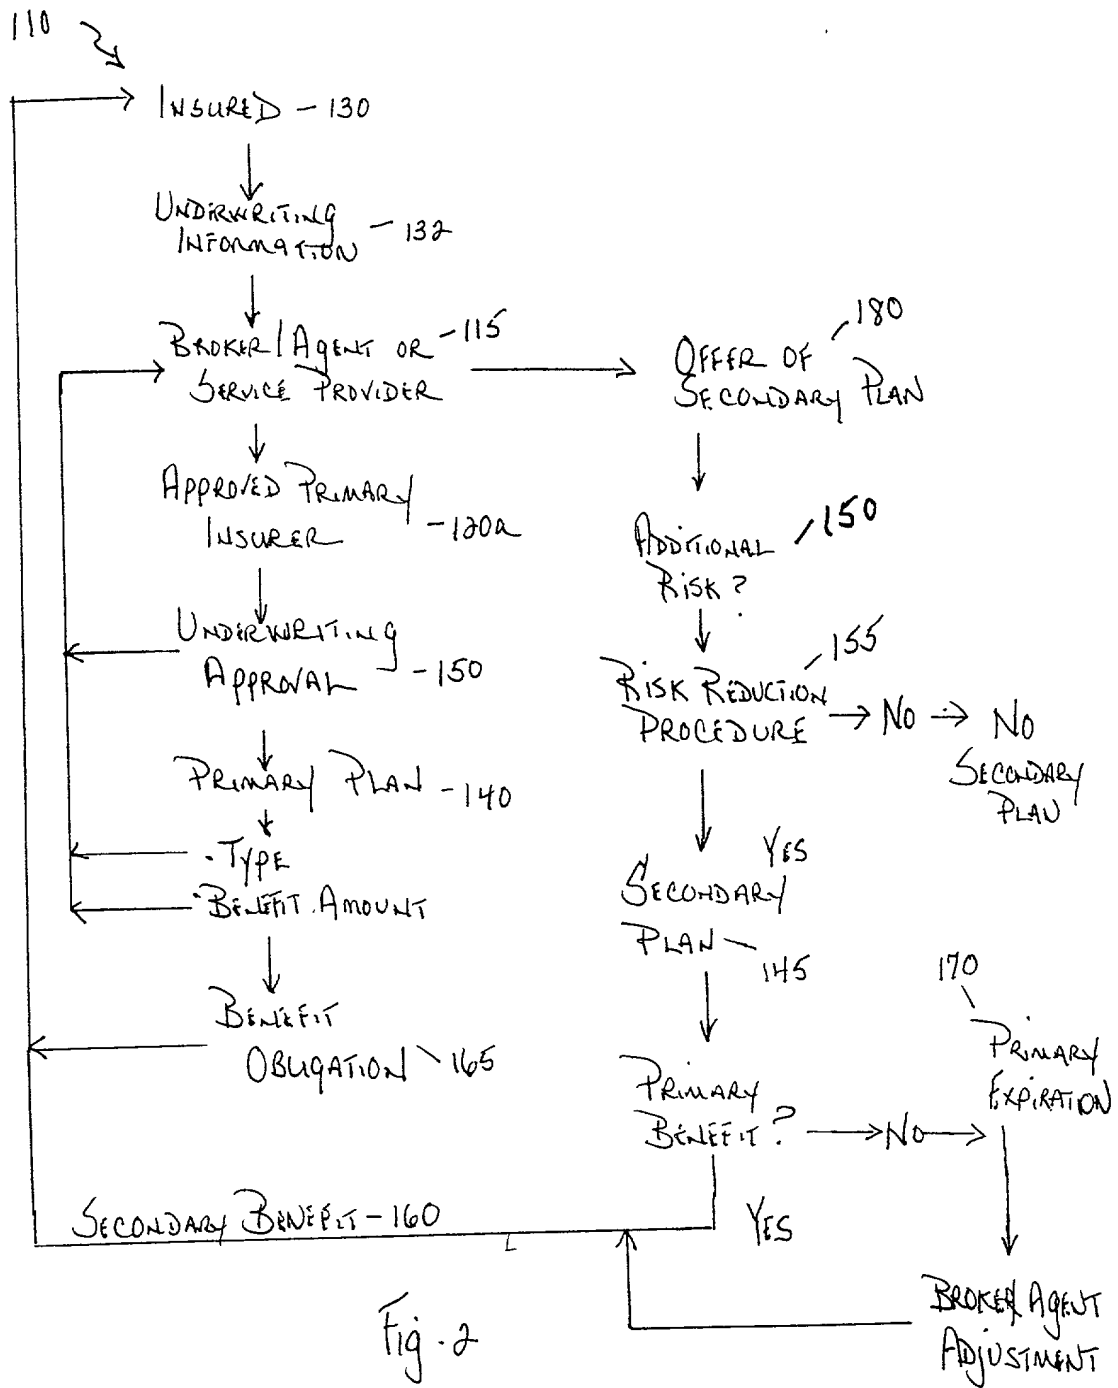 110
INSURED - 130
UNDERWRITING
INFORMATION - 132
BROKER/AGENT OR - 115
SERVICE PROVIDER
APPROVED PRIMARY
INSURER - 120a
UNDERWRITING
APPROVAL - 150
PRIMARY PLAN - 140
· TYPE
· BENEFIT AMOUNT
BENEFIT
OBLIGATION 165
180
OFFER OF
SECONDARY PLAN
150
ADDITIONAL
RISK?
155
RISK REDUCTION
PROCEDURE
NO
NO
SECONDARY
PLAN
YES
SECONDARY
PLAN
145
170
PRIMARY
EXPIRATION
PRIMARY
BENEFIT?
NO
YES
SECONDARY BENEFIT - 160
BROKER/AGENT
ADJUSTMENT
Fig. 2